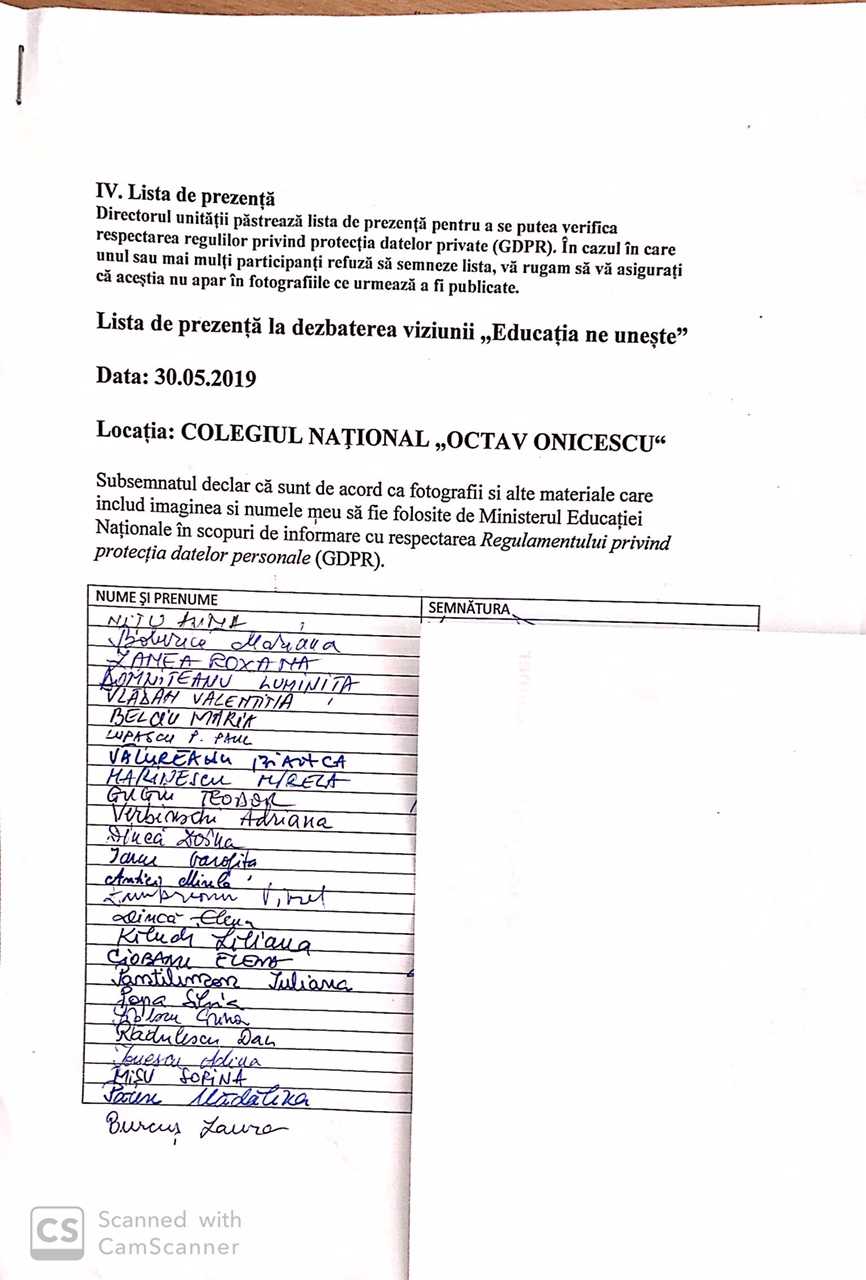 IV. Lista de prezență
Directorul unității păstrează lista de prezență pentru a se putea verifica
respectarea regulilor privind protecția datelor private (GDPR). În cazul în care
unul sau mai mulți participanți refuză să semneze lista, vă rugam să vă asigurați
că aceștia nu apar în fotografiile ce urmează a fi publicate.
Lista de prezență la dezbaterea viziunii „Educația ne unește”
Data: 30.05.2019
Locația: COLEGIUL NAȚIONAL „OCTAV ONICESCU“
Subsemnatul declar că sunt de acord ca fotografii si alte materiale care
includ imaginea si numele meu să fie folosite de Ministerul Educației
Naționale în scopuri de informare cu respectarea Regulamentului privind
protecția datelor personale (GDPR).
NUME ȘI PRENUME SEMNĂTURA
NIȚU
Mariana
ZAMFA ROXANA
DOMNITEANU LUMINITA
VLADAN VALENTINA
BELCIU MARIA
LUPASCU P. PAUL
VALUREANU BIANCA
MARINESCU MIRELA
GUGIU TEODOR
Verbinschi Adriana
Dincă
Garofita
Mirela
Viorel
Dincă Elena
Liliana
CIOBANU ELENA
Pantilimon Iuliana
Popa Silvia
Crina
Rădulescu Dan
Ionescu Adina
MIȘU SORINA
Mădălina
Burcuș Laura
CS Scanned with
CamScanner